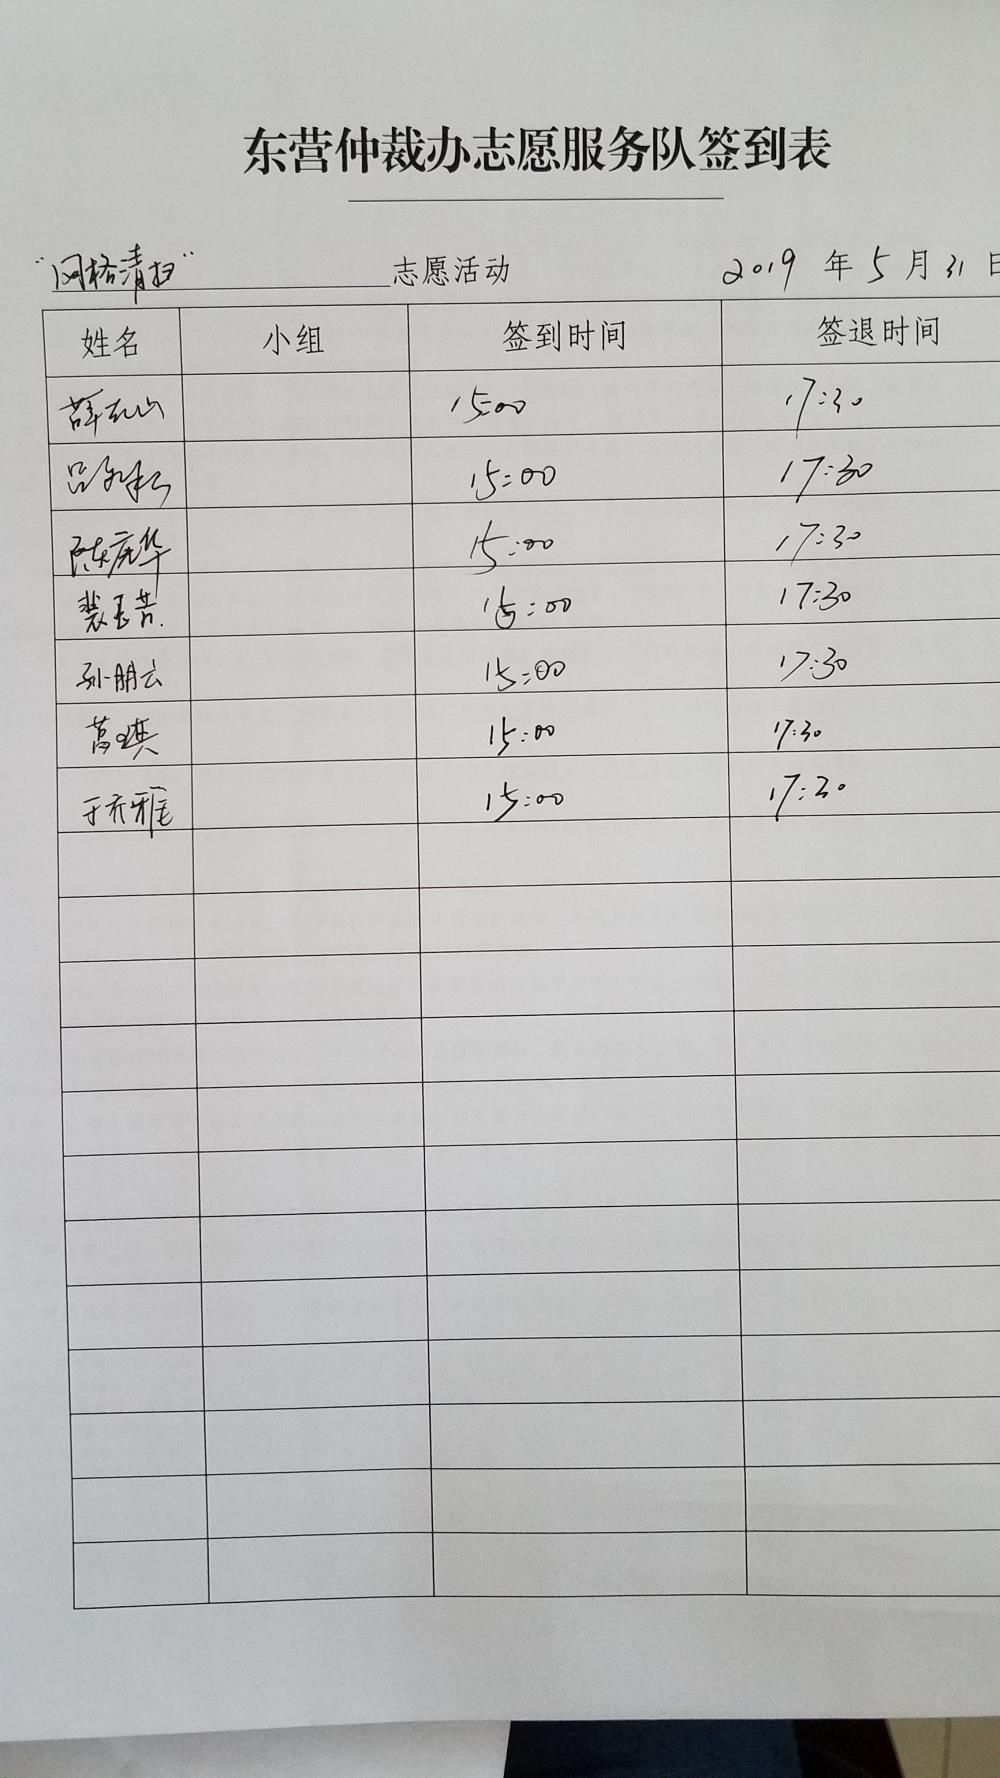 东营仲裁办志愿服务队签到表
“网格清扫” 志愿活动 2019 年 5 月 31 日
姓名 小组 签到时间 签退时间
15:00 17:30
15:00 17:30
陈庆华 15:00 17:30
15:00 17:30
孙朋云 15:00 17:30
葛琪 15:00 17:30
于齐雅 15:00 17:30